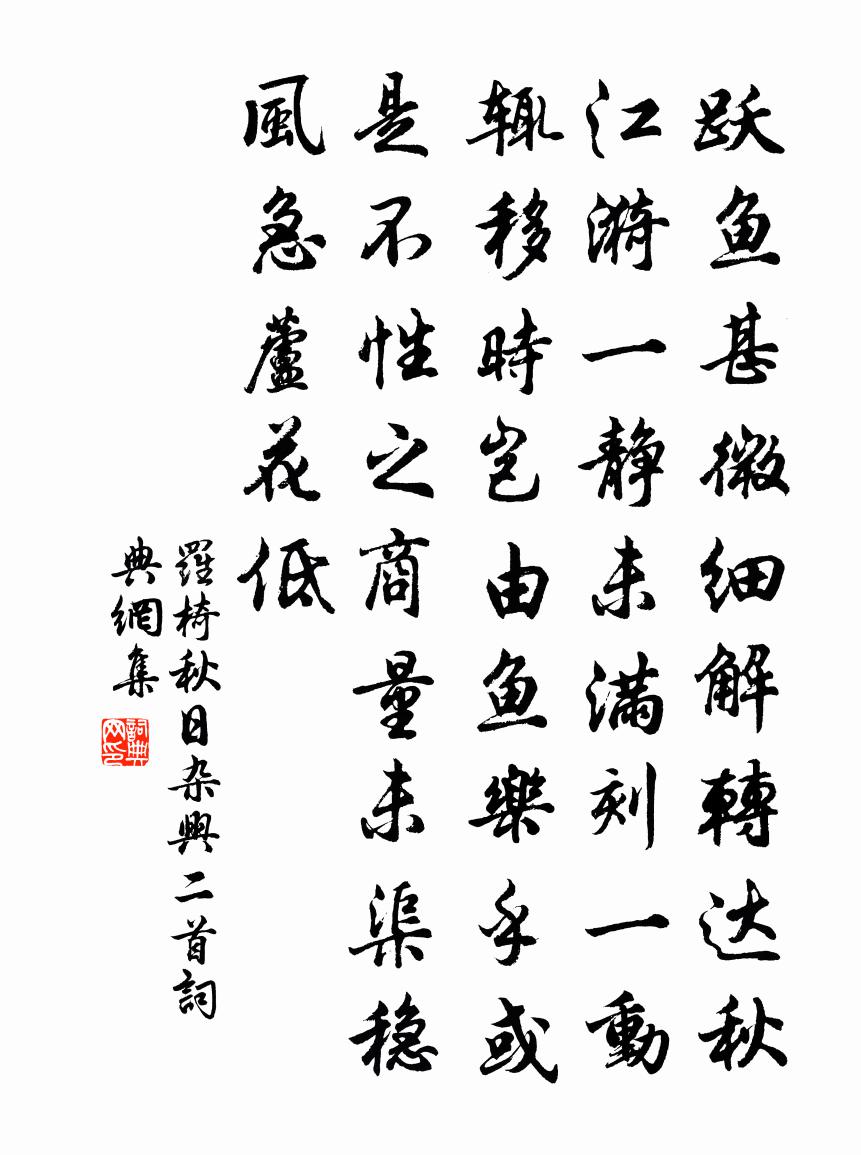 跃鱼甚微细解轉达秋
江漪一静未满刻一動
辄移時岂由鱼樂乎或
是不性之商量未渠稳
風急蘆花低
羅椅秋日杂興二首詞
典網集
詞典网印